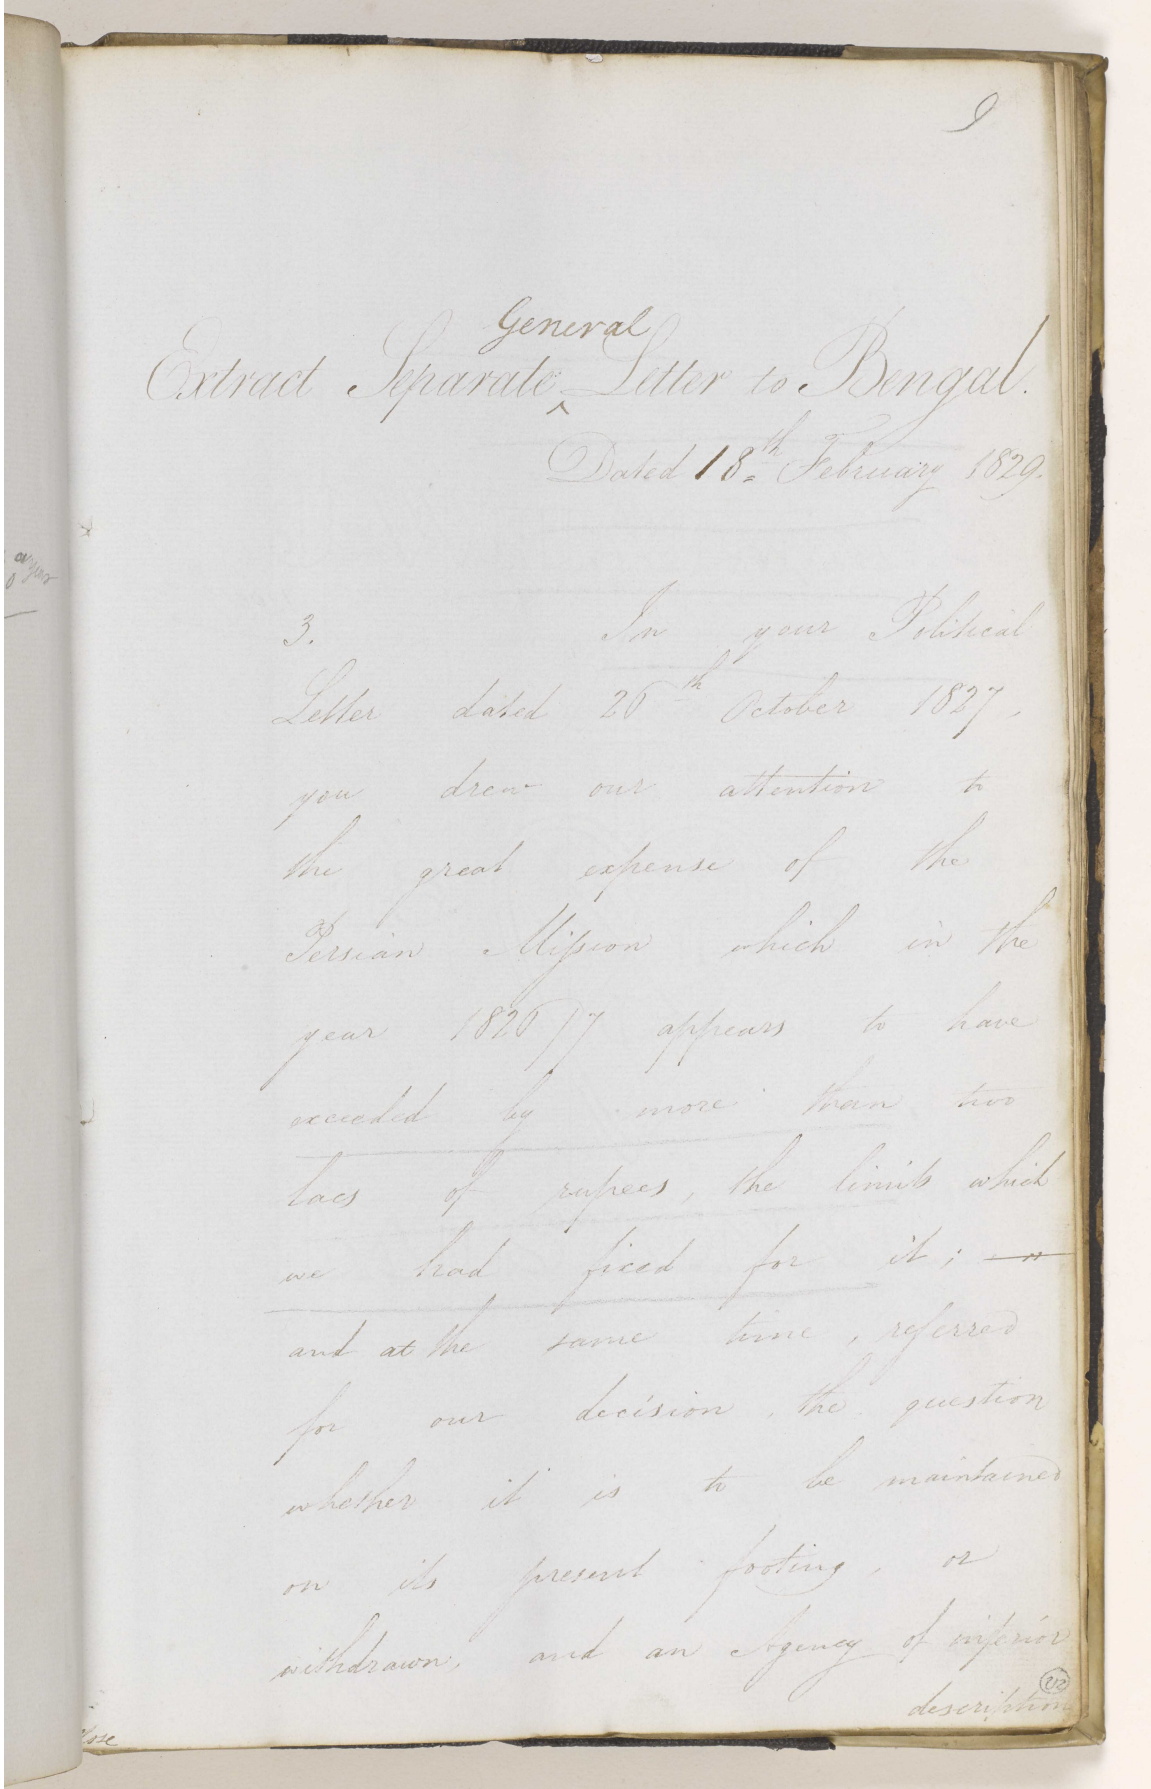 9
General
Extract Separate ^ Letter to Bengal.
Dated 18th February 1829.
3. In your Political
Letter dated 26th October 1827,
you drew our attention to
the great expense of the
Persian Mission which in the
year 1826/7 appears to have
exceeded by more than two
lacs of rupees, the limits which
we had fixed for it; —"
and at the same time, referred
for our decision, the question
whether it is to be maintained
on its present footing, or
withdrawn, and an Agency of inferior
description